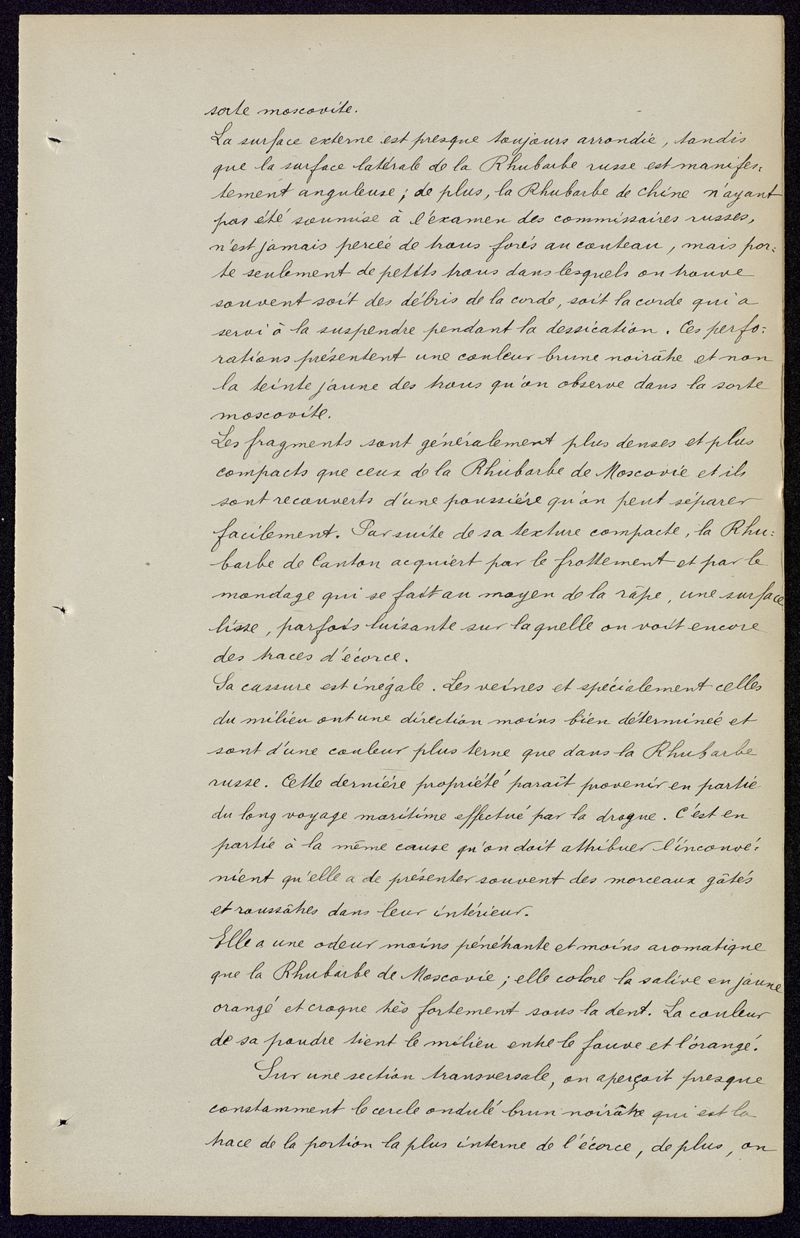 sorte moscovite.
La surface externe est presque toujours arrondie, tandis
que la surface latérale de la Rhubarbe russe est manifes:
tement anguleuse; de plus, la Rhubarbe de Chine n'ayant
pas été soumise à l'examen des commissaires russes,
n'est jamais percée de trous forés au couteau, mais por:
te seulement de petits trous dans lesquels on trouve
souvent soit des débris de la corde, soit la corde qui a
servi à la suspendre pendant la dessication. Ces perfo:
rations présentent une couleur brune noirâtre et non
la teinte jaune des trous qu'on observe dans la sorte
moscovite.
Les fragments sont généralement plus denses et plus
compacts que ceux de la Rhubarbe de Moscovie et ils
sont recouverts d'une poussière qu'on peut séparer
facilement. Par suite de sa texture compacte, la Rhu:
barbe de Canton acquiert par le frottement et par le
mondage qui se fait au moyen de la râpe, une surface
lisse, parfois luisante sur laquelle on voit encore
des traces d'écorce.
Sa cassure est inégale. Les veines et spécialement celles
du milieu ont une direction moins bien déterminée et
sont d'une couleur plus terne que dans la Rhubarbe
russe. Cette dernière propriété paraît provenir en partie
du long voyage maritime effectué par la drogue. C'est en
partie à la même cause qu'on doit attribuer l'inconvé:
nient qu'elle a de présenter souvent des morceaux gâtés
et roussâtres dans leur intérieur.
Elle a une odeur moins pénétrante et moins aromatique
que la Rhubarbe de Moscovie; elle colore la salive en jaune
orangé et croque très fortement sous la dent. La couleur
de sa poudre tient le milieu entre le fauve et l'orangé.
Sur une section transversale, on aperçoit presque
constamment le cercle ondulé brun noirâtre qui est la
trace de la portion la plus interne de l'écorce, de plus, on